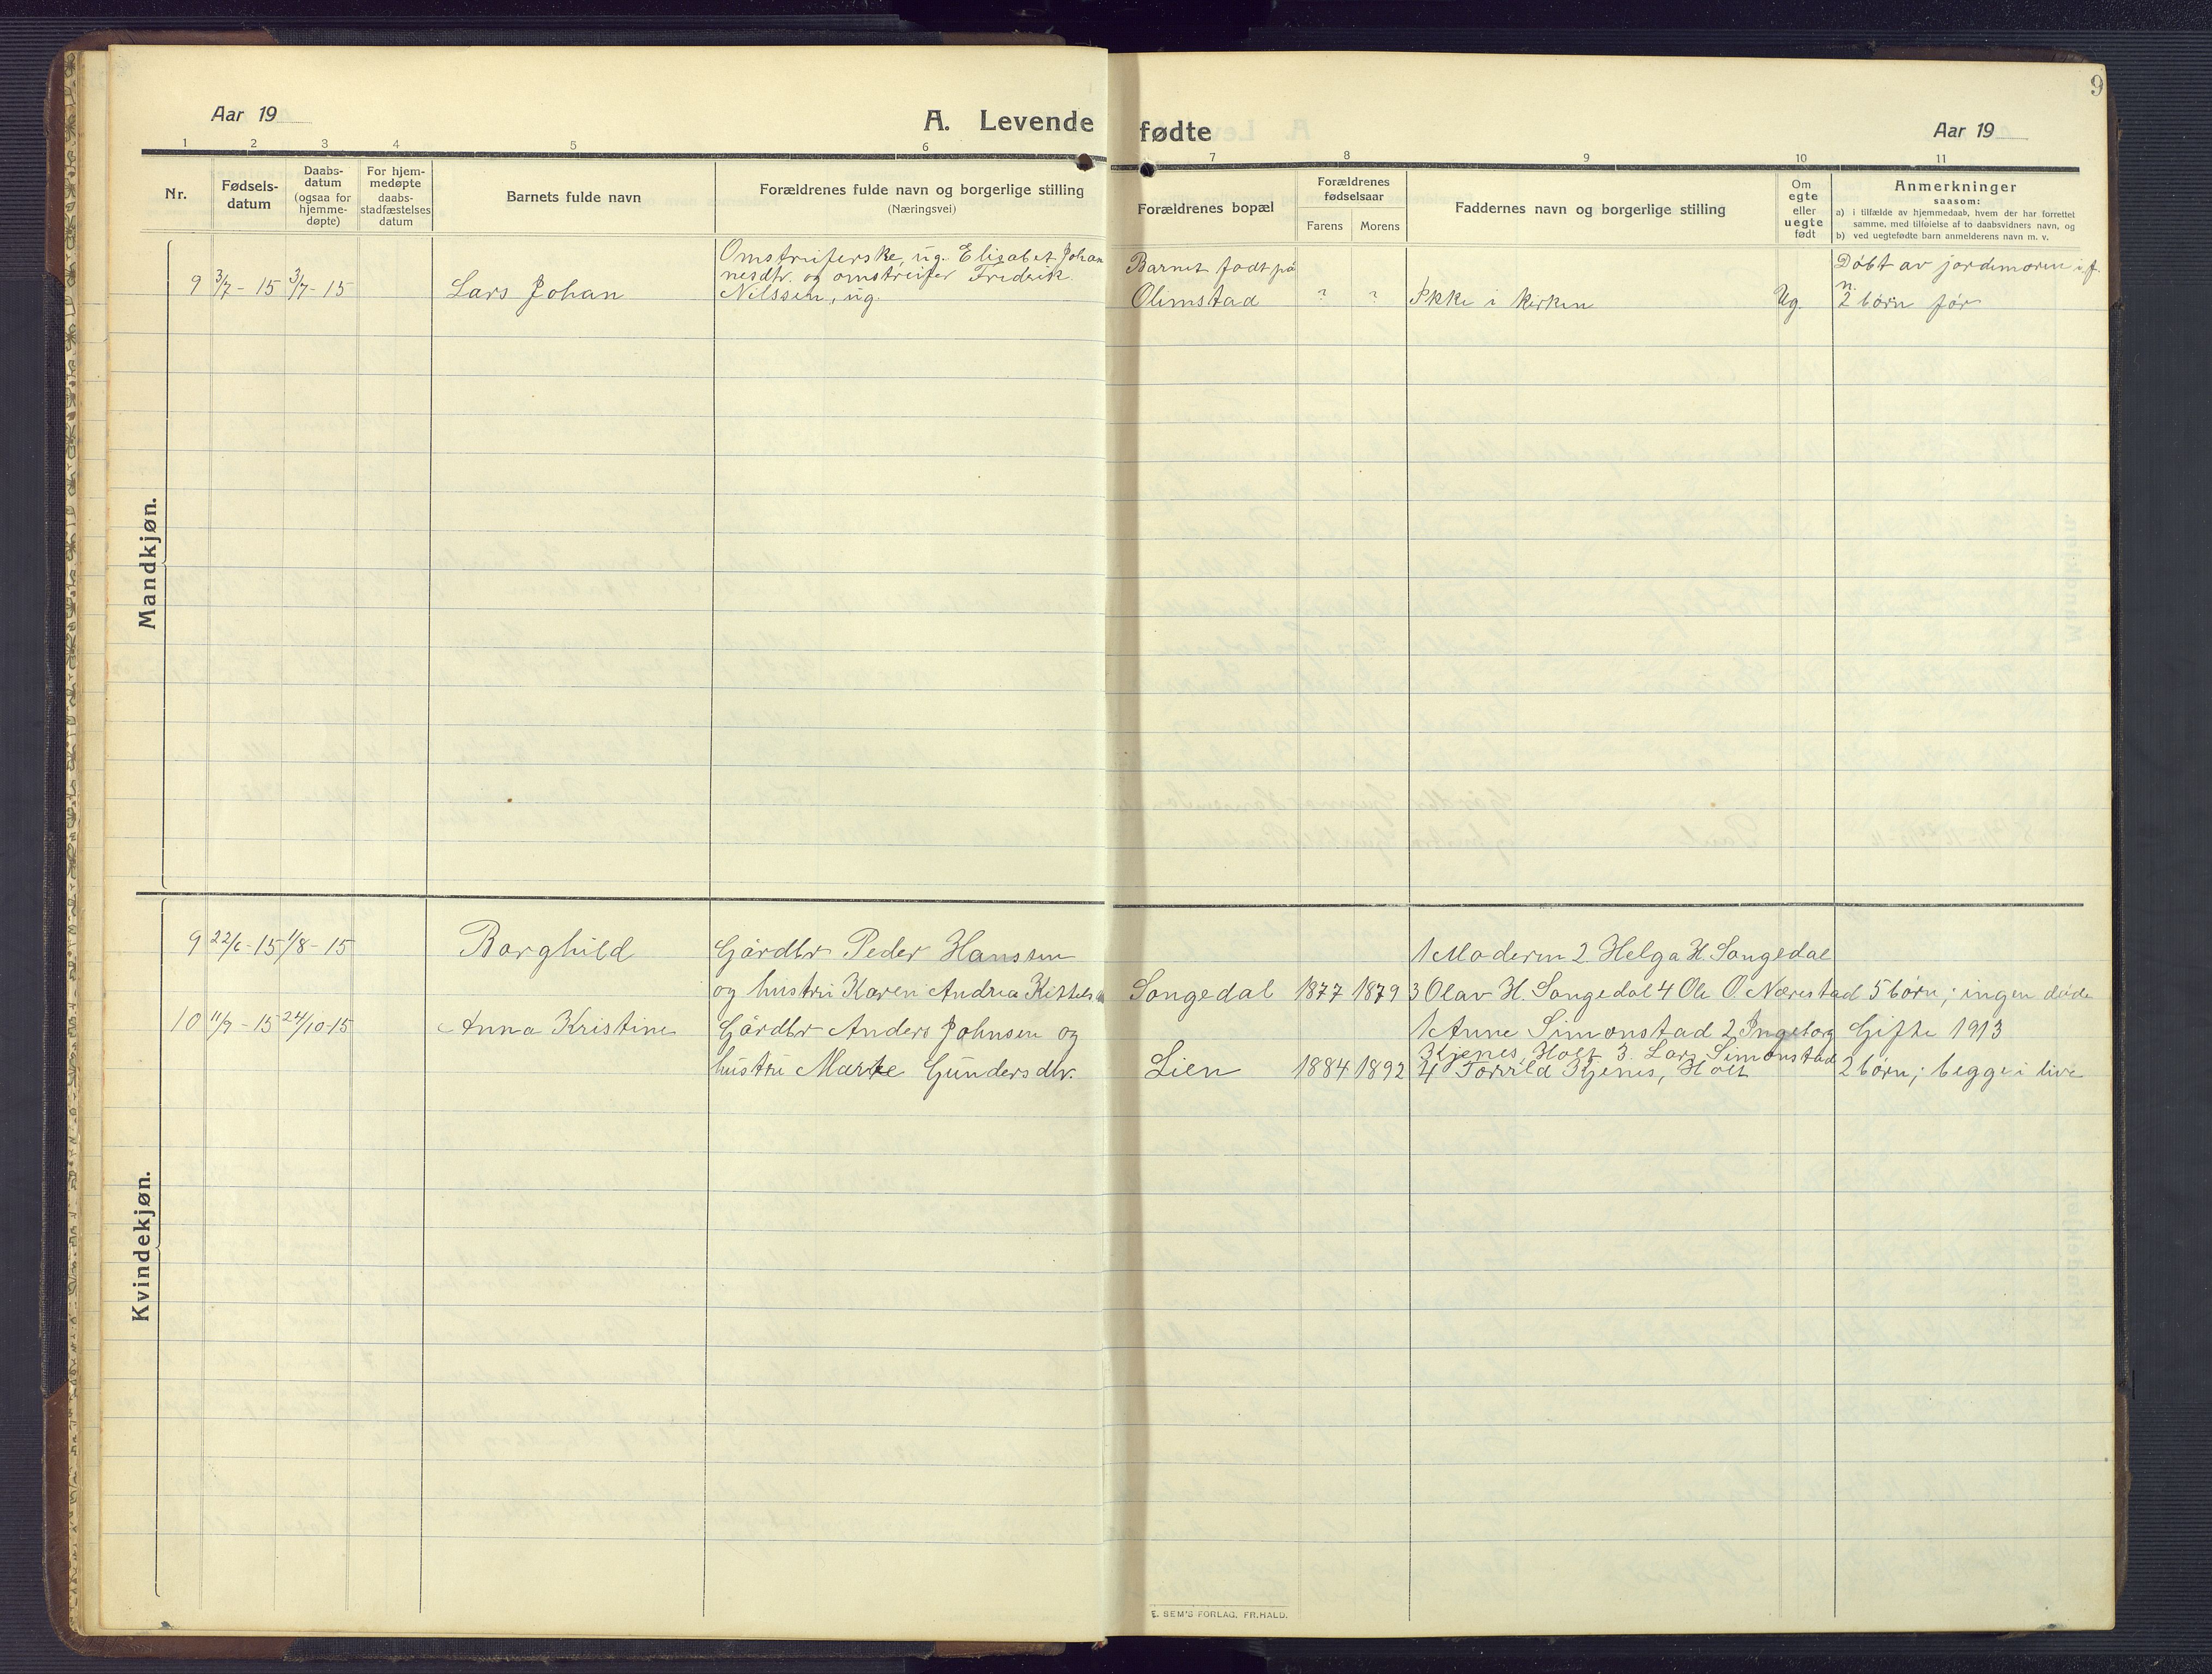 9
Aar 19
A. Levende
fødte
Aar 19
1 2 3 4 5 6 7 8 9 10 11
Nr.
Fødsels-
datum
Daabs-
datum
(ogsaa for
hjemme-
døpte)
For hjem-
medøpte
daabs-
stadfæstelses
datum
Barnets fulde navn
Forældrenes fulde navn og borgerlige stilling
(Næringsvei)
Forældrenes bopæl
Forældrenes
fødselsaar
Farens Morens
Faddernes navn og borgerlige stilling
Om
egte
eller
uegte
født
Anmerkninger
saasom:
a) i tilfælde av hjemmedaab, hvem der har forrettet
samme, med tilføielse af to daabsvidners navn, og
b) ved uegtefødte barn anmelderens navn m. v.
Mandkjøn.
Omstreiferske, ug. Elisabet Johan
nesdtr. og omstreifer Frederik
Nilssen, ug.
9 3/7 - 15 3/7 - 15 Lars Johan
Barnet født på
Olimstad ? ? Ikke i kirken Ug.
Døbt av jordemoren i f.
n.
2 børn før
Kvindekjøn.
9 22/6 - 15 1/8 - 15 Borghild Gårdbr Peder Hanssen 1 Moderen 2. Helga H. Songedal
og hustru Karen Andrea Kittels Songedal 1877 1879 3 Olav H. Songedal 4 Ole O. Nærestad 5 børn; ingen døde
10 11/9 - 15 24/10-15 Anna Kristine Gårdbr Anders Johnsen og 1 Anne Simonstad 2 Ingeborg Gifte 1913
Kjenes, Holt 3. Lars Simonstad
hustru Marte Gundersdtr. Lien 1884 1892 4 Torvild Kjenes, Holt 2 børn; begge i live
E. SEM'S FORLAG, FR.HALD.